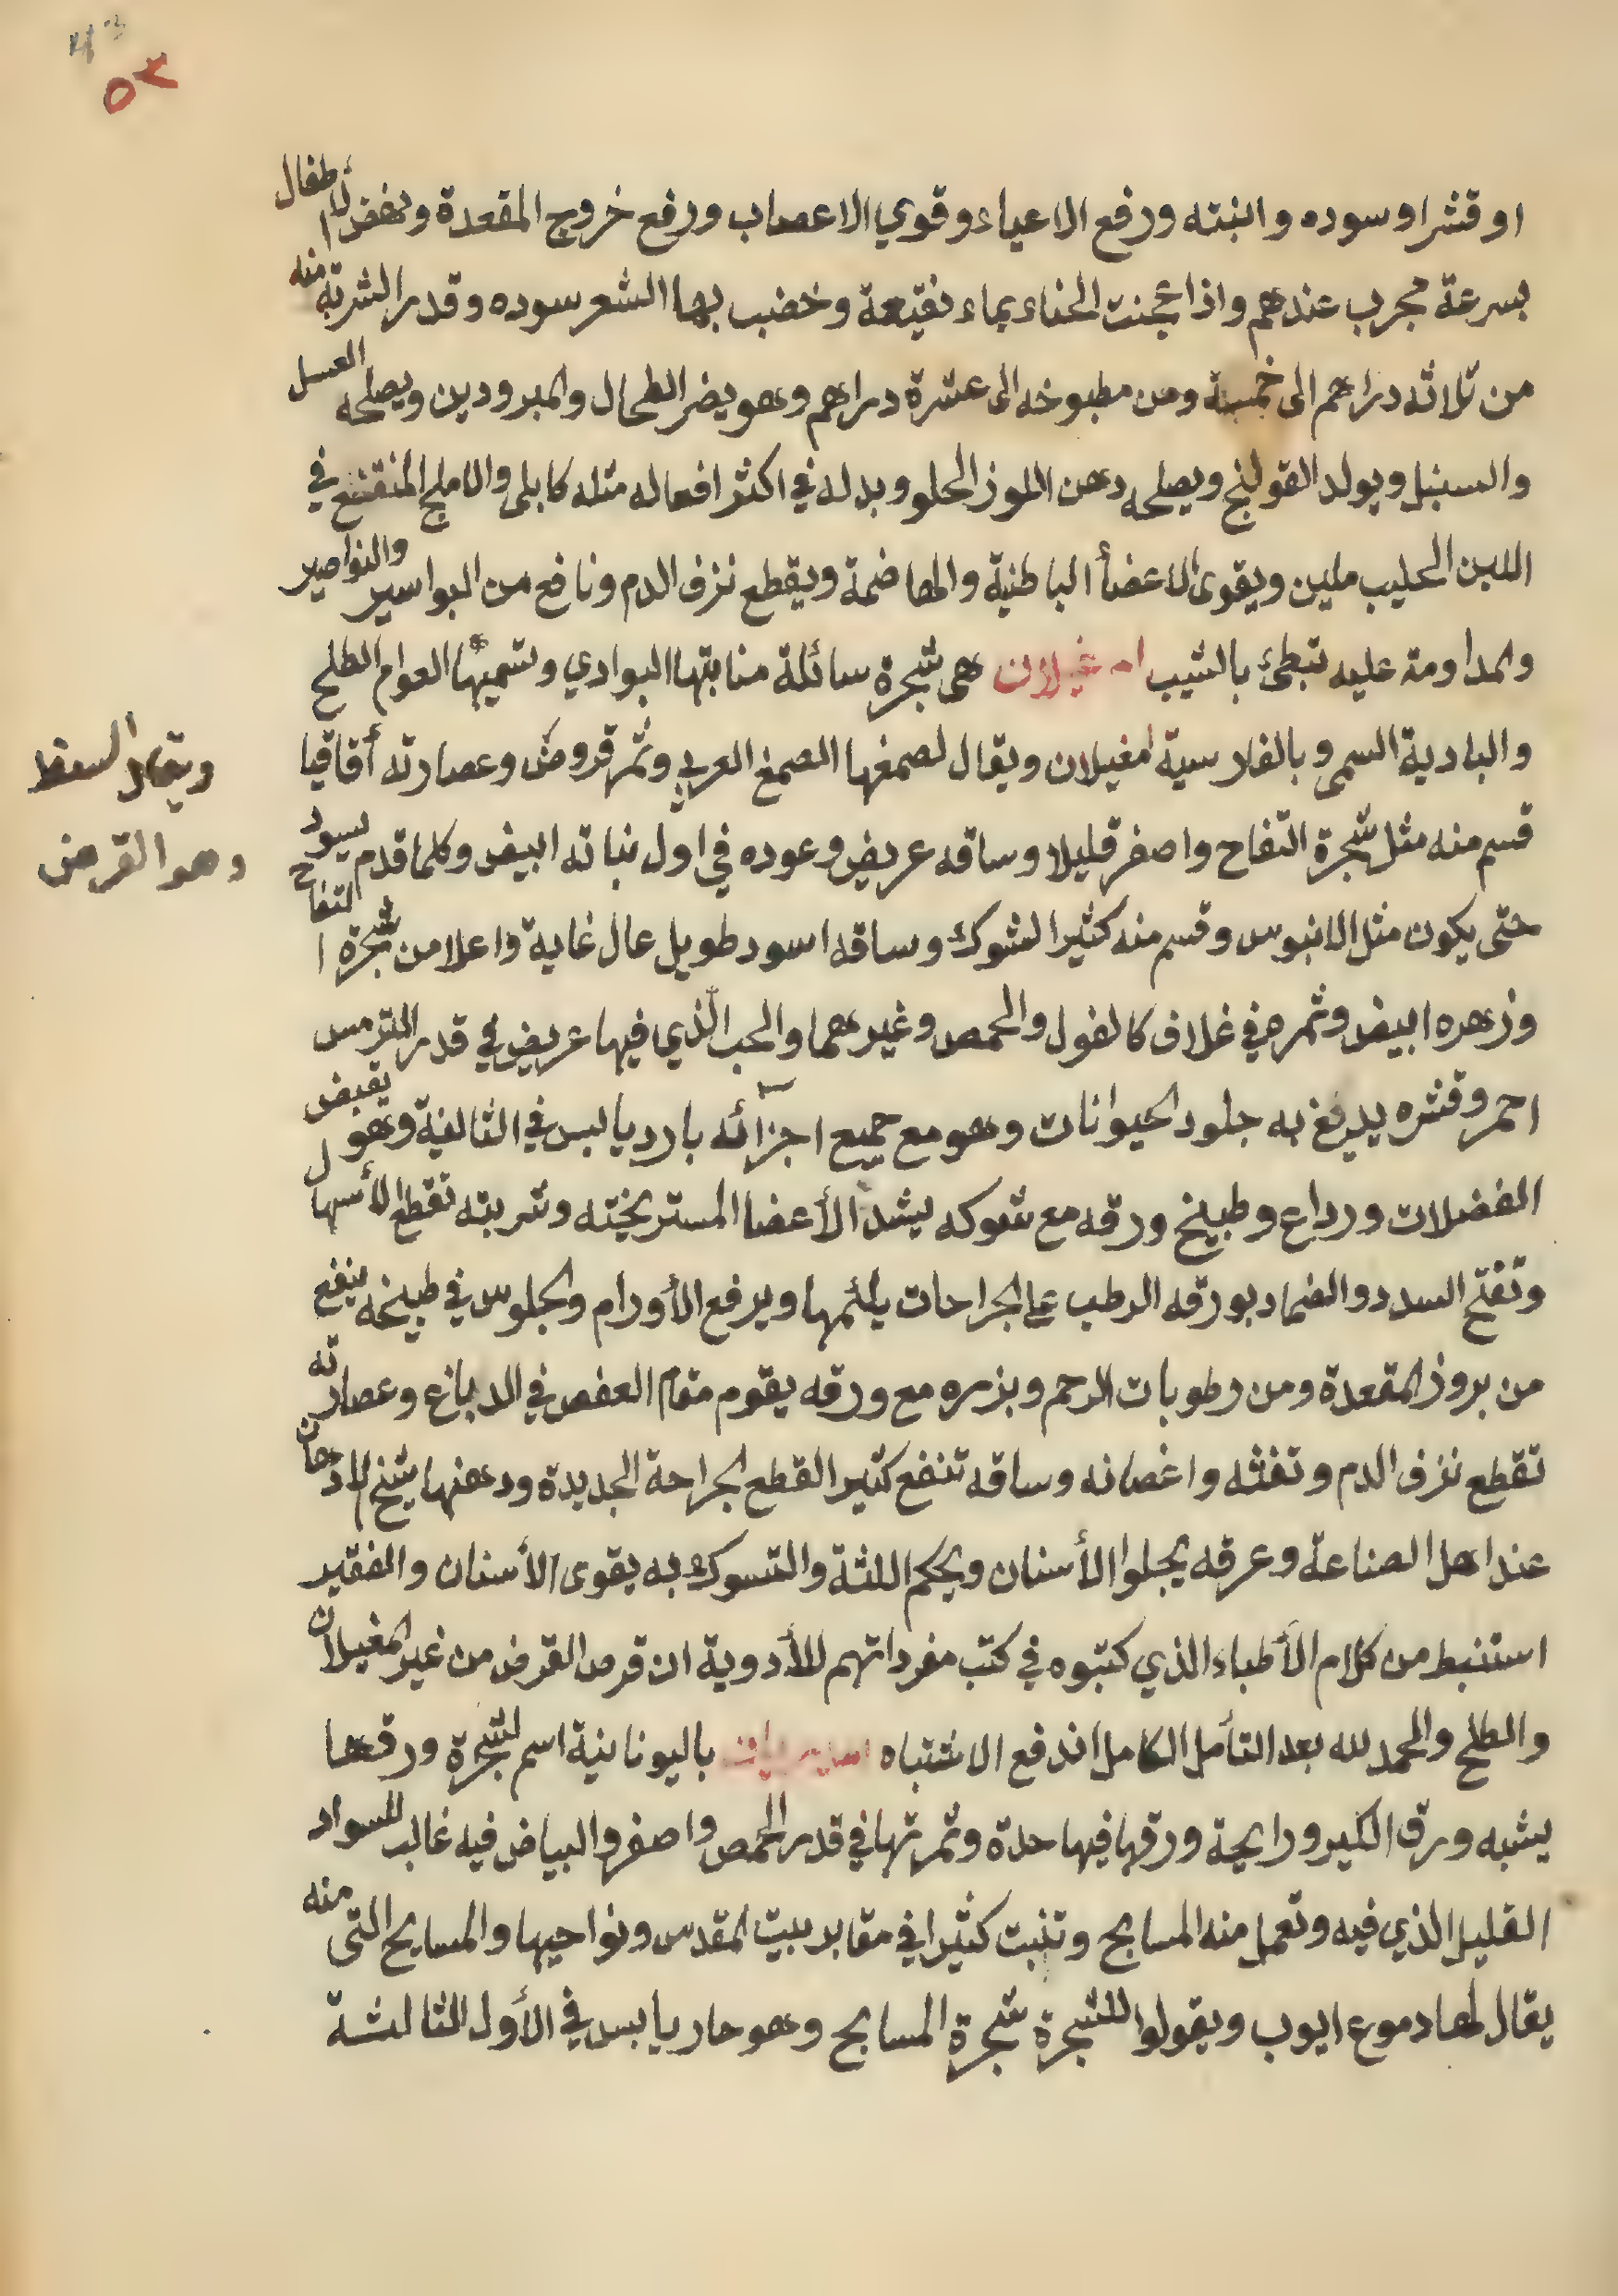 ٥٣
او قشرا وسوده وانبته ورفع الاعياء وقوي الاعصاب ورفع خروج المقعدة ونهض الأطفال
بسرعة مجرب عندهم واذا عجنت الحناء بماء نقيعة وخضب بها الشعر سوده وقدر الشربة منه
من ثلاثه دراهم الى خمسة ومن مطبوخه الى عشرة دراهم وهو يضر الطحال والمبرودين ويصلحه العسل
والسنبل ويولد القولنج ويصلحه دهن اللوز الحلو وبدله في اكثر افعاله مثله كابلى والاملج المنقع في
اللبن الحليب ملين ويقوى الاعضأ الباطنية والهاضمة ويقطع نزف الدم ونافع من البواسير والنواصير
والمداومة عليه تبطئ بالشيب ام غيلان هى شجرة سائلة منابتها البوادي وتسميها العوام الطلح
والبادية السمى وبالفارسية امغيلان ويقال لصمغها الصمغ العربي وثمرة قروض وعصارته أقاقيا
ويقال السنط
وهو القرض
قسم منه مثل شجرة التفاح واصغر قليلا وساقه عريض وعوده في اول نباته ابيض وكلما قدم يسود
حتى يكون مثل الانبوس وقسم منه كثير الشوك وساقه اسود طويل عال غاية واعلا من شجرة التفاح
وزهره ابيض وثمره في غلاف كالفول والحمص وغيرهما والحب الذي فيها عريض في قدر الترمس
احمر وقشره يدبغ به جلود الحيوانات وهو مع جميع اجزائه بارد يابس في الثالثة وهو يقبض
الفضلات ورداع وطبيخ ورقه مع شوكه يشد الأعضا المسترخيته وشربته تقطع الأسهال
وتفتح السدد والضماد بورقه الرطب على الجراحات يلئمها ويرفع الأورام والجلوس في طبيخه ينفع
من بروز المقعدة ومن رطوبات الرحم وبزره مع ورقه يقوم مقام العفص في الدباغ وعصارته
تقطع نزف الدم وتفثه واغصانه وساقه تنفع كثير القطع الجراحة الجديدة ودهنها شيخ الادهان
عند اهل الصناعة وعرقه يجلوا الأسنان ويحكم اللثة والتسوك به يقوى الأسنان والفقير
استنبط من كلام الأطباء الذي كتبوه في كتب مفرداتهم للأدوية ان قرص القرض من غير المغيلان
والطلح والحمد لله بعد التأمل الكامل اندفع الاشتباه باليونانية اسم لشجرة ورقها
يشبه ورق الكبر ورايحة ورقها فيها حدة وثمرتها في قدر الحمص واصغر والبياض فيه غالب للسواد
القليل الذي فيه وتعمل منه المسابح وتنبت كثيرا في مقابر بيت المقدس ونواحيها والمسابح التى منه
يقال لها دموع ايوب ويقولوا للشجرة شجرة المسابح وهو حار يابس في الأول الثالثة